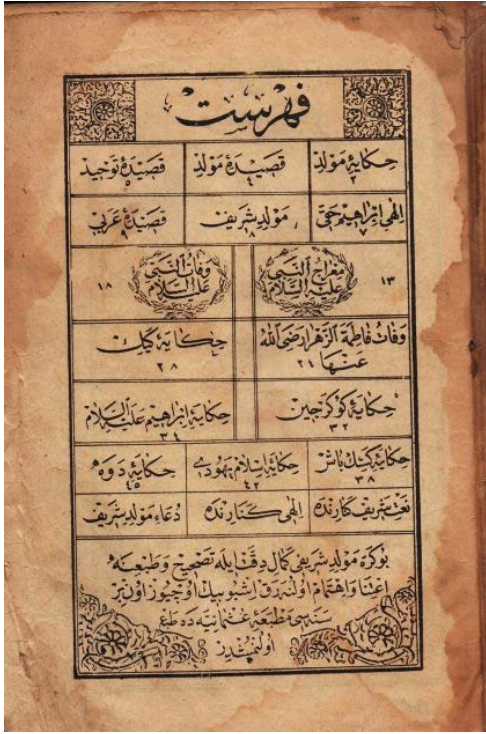 فهرست
حكایۀ مولد ٢ قصیدۀ مولد ٤ قصیدۀ توحید ٥
الهی ابراهیم حقی ٧ مولد شریف ٨ قصیدۀ عربی ٩
معراج النبی علیه السلام ١٣ وفات النبی علیه السلام ١٨
وفات فاطمة الزهرا رضی الله عنها ٢٤ حكایۀ كیك ٢٨
حكایۀ كوكرجین ٣٢ حكایۀ ابراهیم علیه السلام ٣٤
حكایۀ كسك باش ٣٨ حكایۀ اسلام یهودی ٤٢ حكایۀ دوه ٤٥
نعت شریف كنارنده الهی كنارنده دعاء مولد شریف
بوكره مولد شریفی كمال دقت ایله تصحیح و طبعنه
اعتنا و اهتمام اولنه رق اشبو بیك اوچیوز اون بر
سنه سی مطبعۀ عثمانیه ده طبع
اولنمشدر